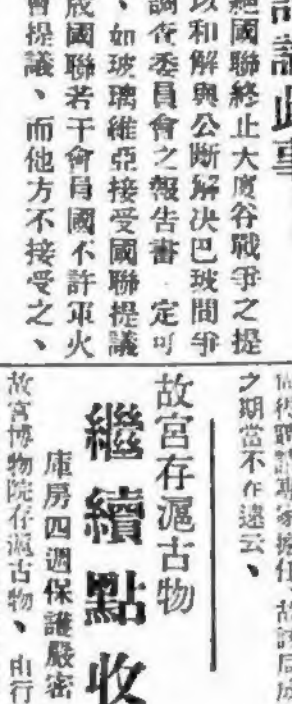 討論此事
絕國聯終止大廈谷戰爭之提
以和解與公斷解決巴玻間爭
調查委員會之報告書 定可
、如玻璃維亞接受國聯提議
成國聯若干會員國不許軍火
會提議、而他方不接受之、
之期當不在遠云、
故宮存滬古物
繼續點收
庫房四週保護嚴密
故宮博物院存滬古物、由行